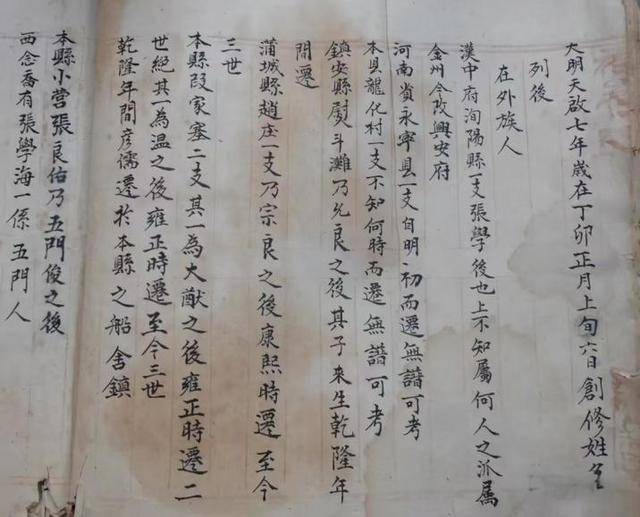 大明天啟七年歲在丁卯正月上旬六日創修姓名
列後
在外族人
漢中府洵陽縣一支張學後也上不知屬何人之派屬
金州今改興安府
河南省永寧县一支自明初而遷無譜可考
本县龍化村一支不知何時而遷無譜可考
鎮安縣熨斗灘乃允良之後其子來生乾隆年
間遷
蒲城縣趙庄一支乃宗良之後康熙時遷至今
三世
本縣段家塞二支其一為大猷之後雍正時遷二
世絕其一為温之後雍正時遷至今三世
乾隆年間彦儒遷於本縣之船舍鎮
本縣小营張良佑乃五門俊之後
西念喬有張學海一係五門人